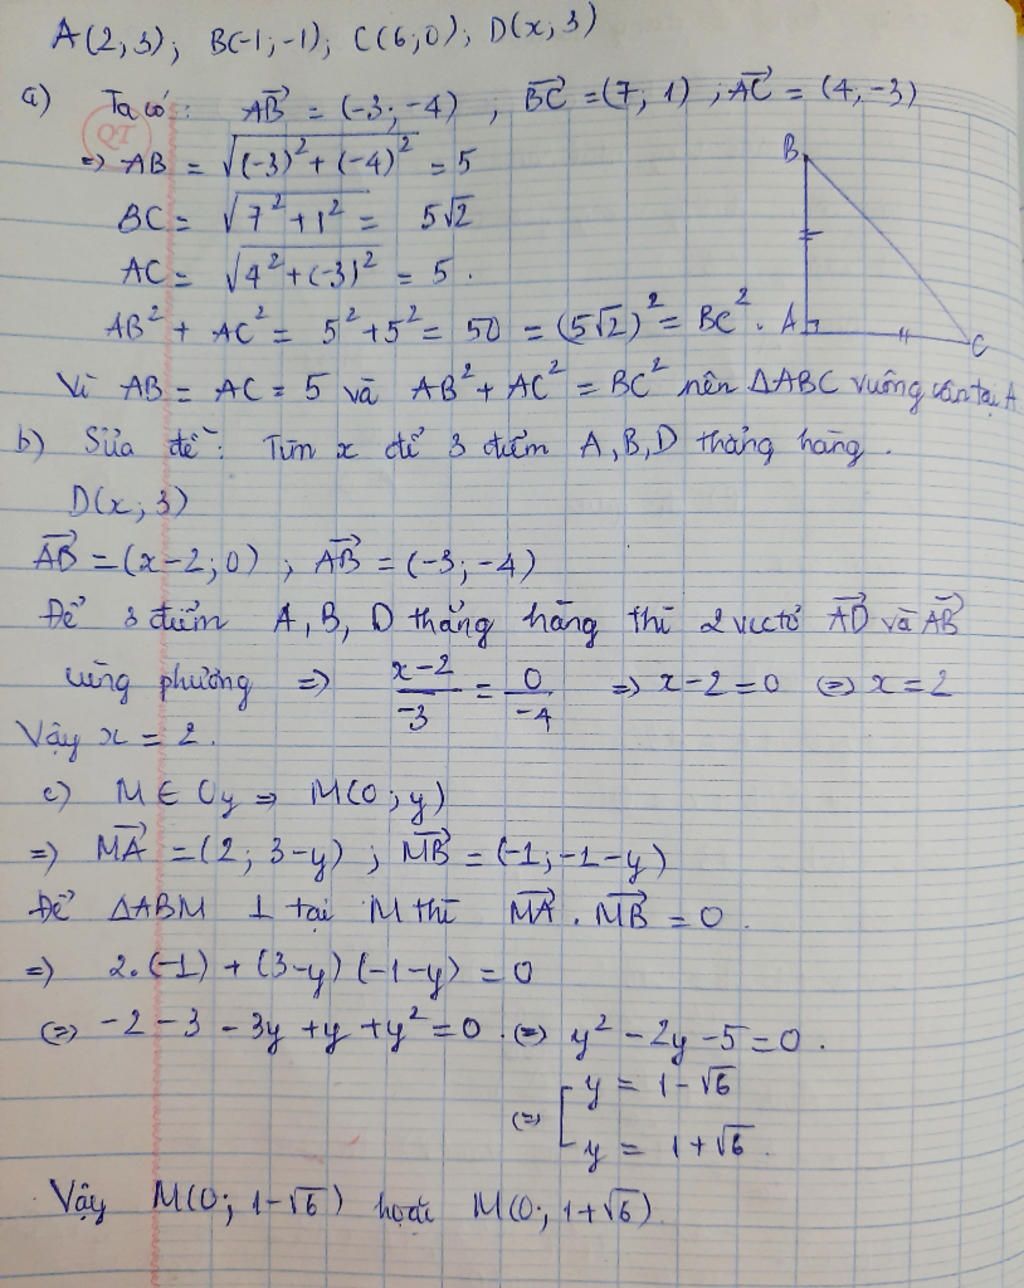 A(2,3); B(-1;-1); C(6;0); D(x;3)
a) Ta có: AB→ = (-3;-4), BC→ = (7; 1); AC→ = (4,-3)
QT
=> AB = √((-3)² + (-4)²) = 5
BC = √(7² + 1²) = 5√2
AC = √(4² + (-3)²) = 5.
AB² + AC² = 5² + 5² = 50 = (5√2)² = BC².
B
A
C
Vì AB = AC = 5 và AB² + AC² = BC² nên ΔABC vuông cân tại A
b) Sửa đề: Tìm x để 3 điểm A, B, D thẳng hàng.
D(x; 3)
AB→ = (x-2; 0); AB→ = (-3;-4)
Để 3 điểm A, B, D thẳng hàng thì 2 vectơ AD→ và AB→
cùng phương => (x-2)/-3 = 0/-4 => x-2=0 <=> x=2
Vậy x = 2.
c) M ∈ Oy => M(0; y)
=> MA→ = (2; 3-y); MB→ = (-1;-1-y)
Để ΔABM ⊥ tại M thì MA→ . MB→ = 0.
=> 2.(-1) + (3-y)(-1-y) = 0
<=> -2-3-3y+y+y²=0. <=> y²-2y-5=0.
<=> [ y = 1-√6
y = 1+√6.
Vậy M(0; 1-√6) hoặc M(0; 1+√6).